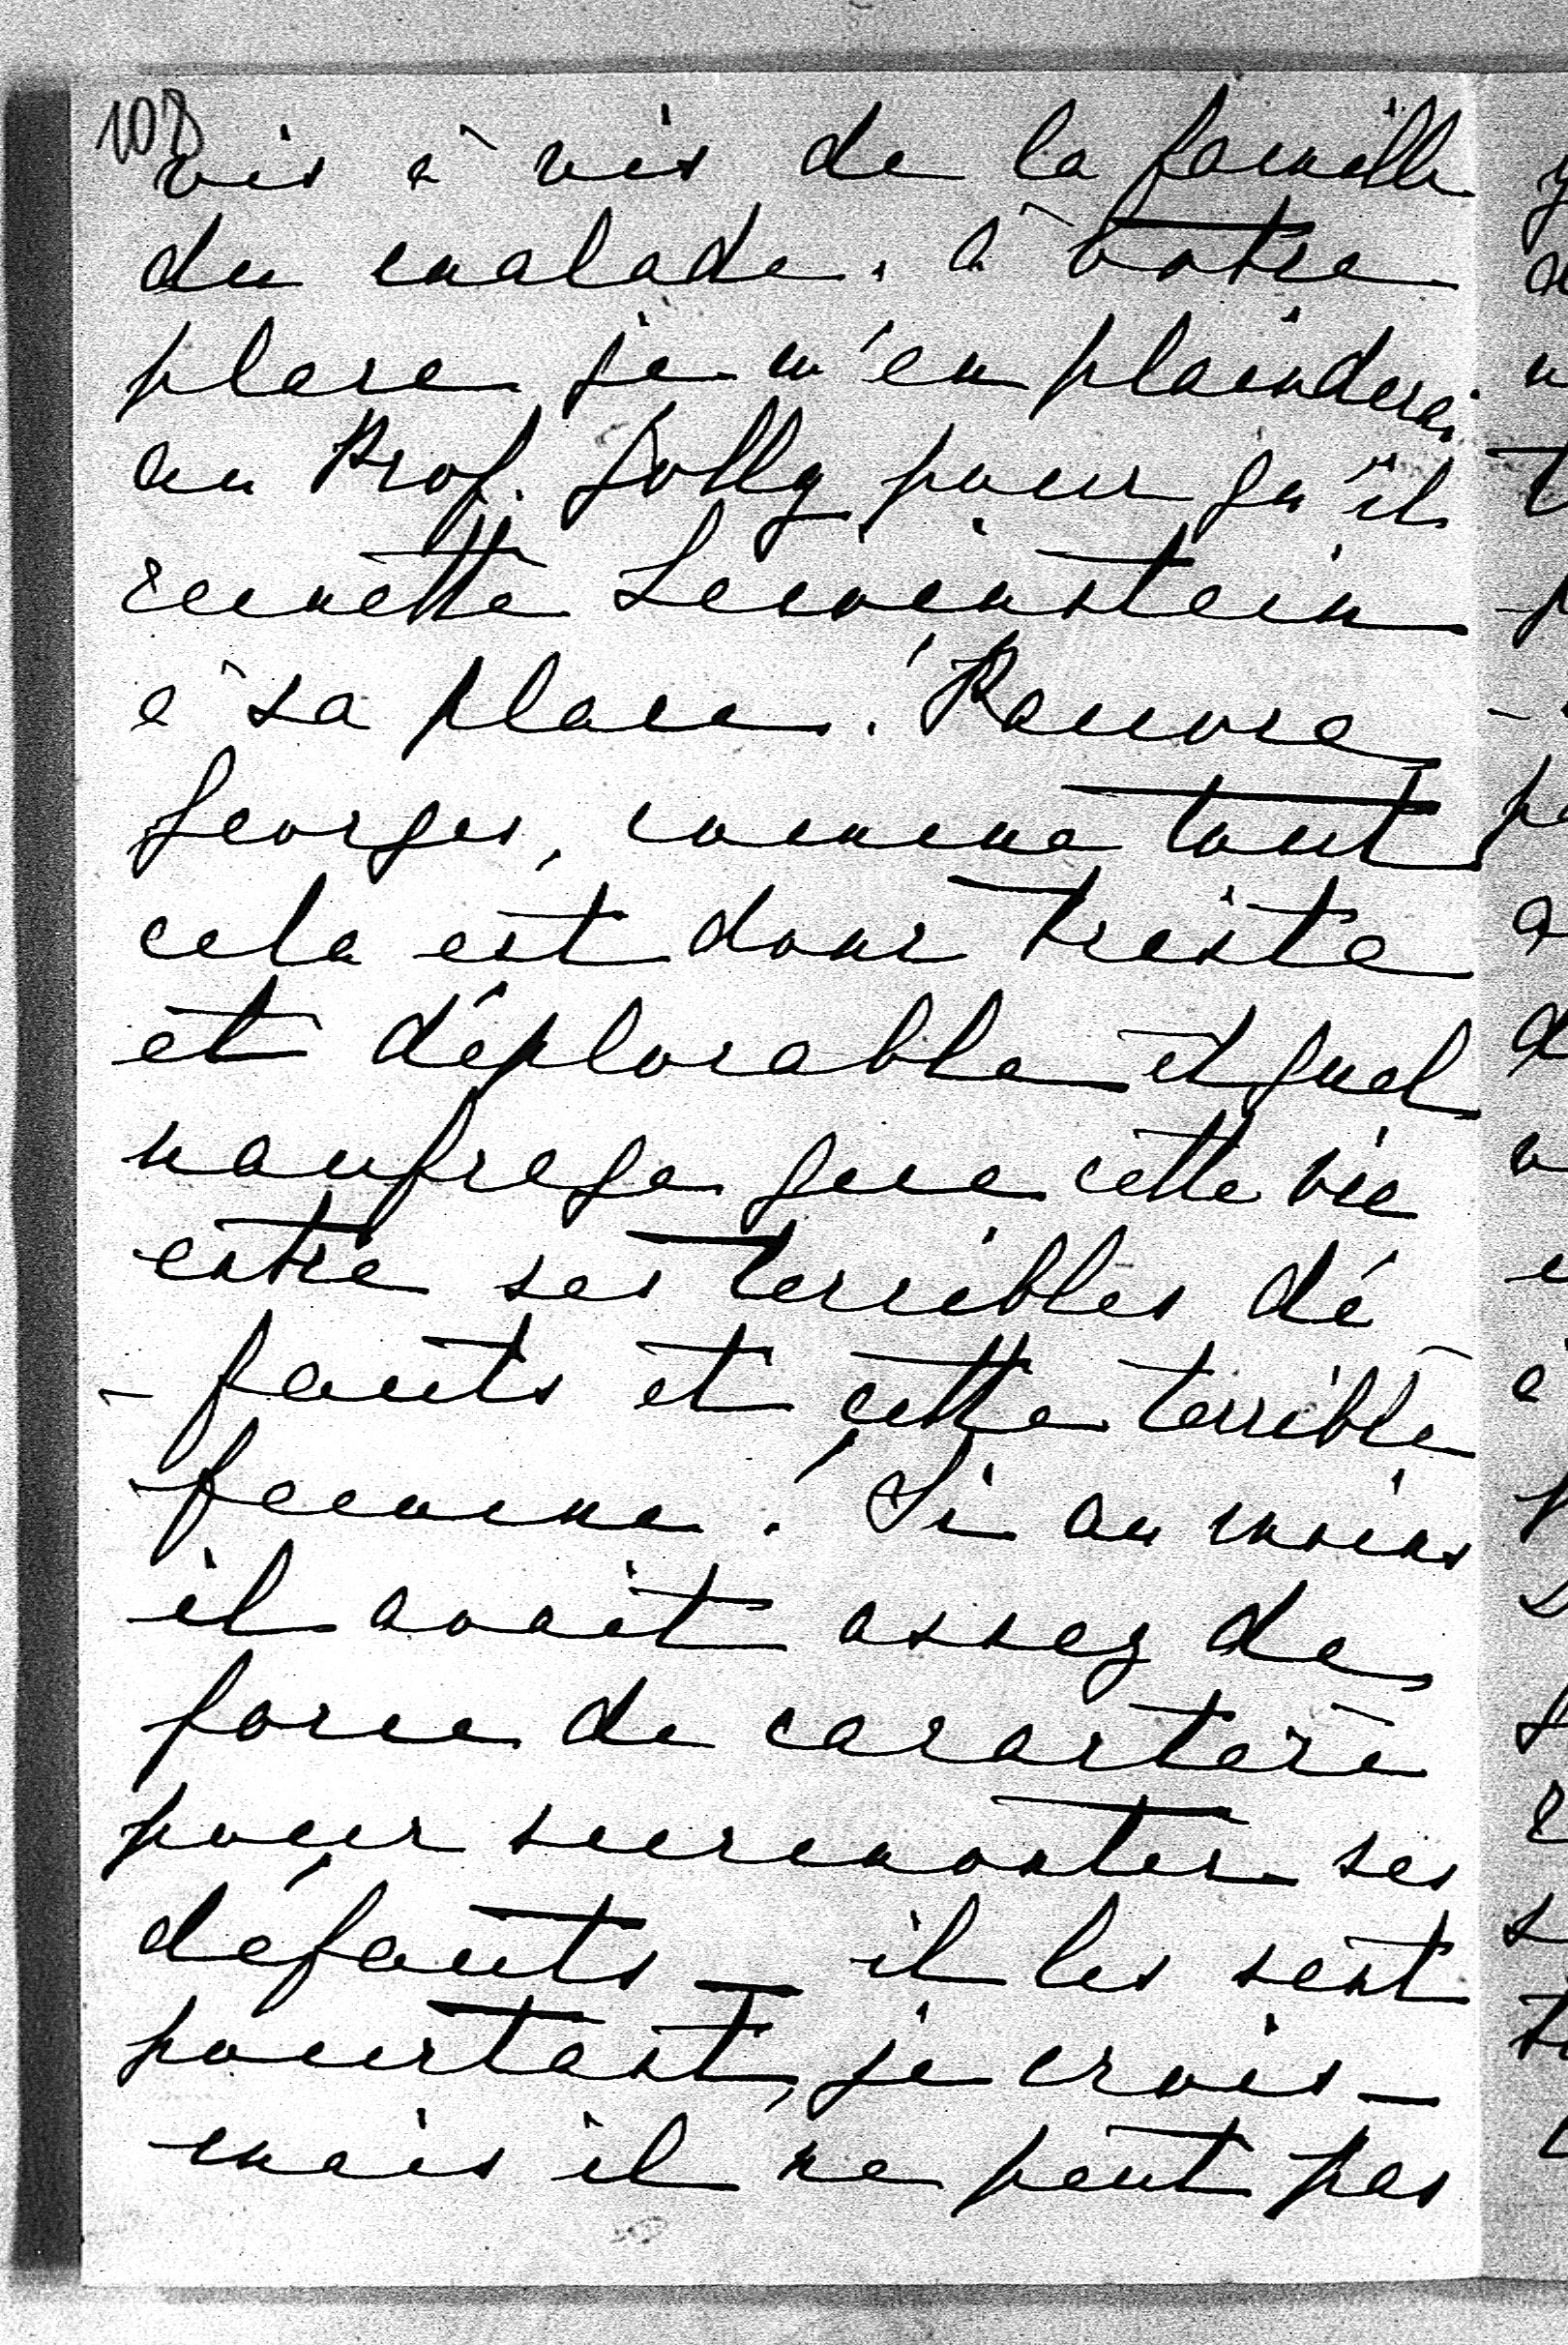 108
vis à vis de la famille
du malade. à votre
place je m'en plainderai
au Prof. Jolly pour qu'il
remette Lewinstein
à sa place! Pauvre
Georges, comme tout
cela est donc triste
et déplorable et quel
naufrage que cette vie
entre ses terribles dé
-fauts et cette terrible
femme! Si au moins
il avait assez de
force de caractère
pour surmonter ses
défauts _ il les sent
pourtant, je crois _
mais il ne peut pas